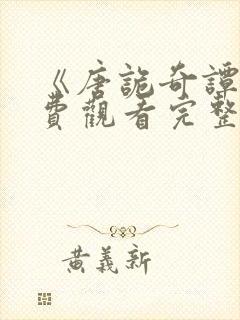 《唐詭奇譚
費觀看完整
黃義新